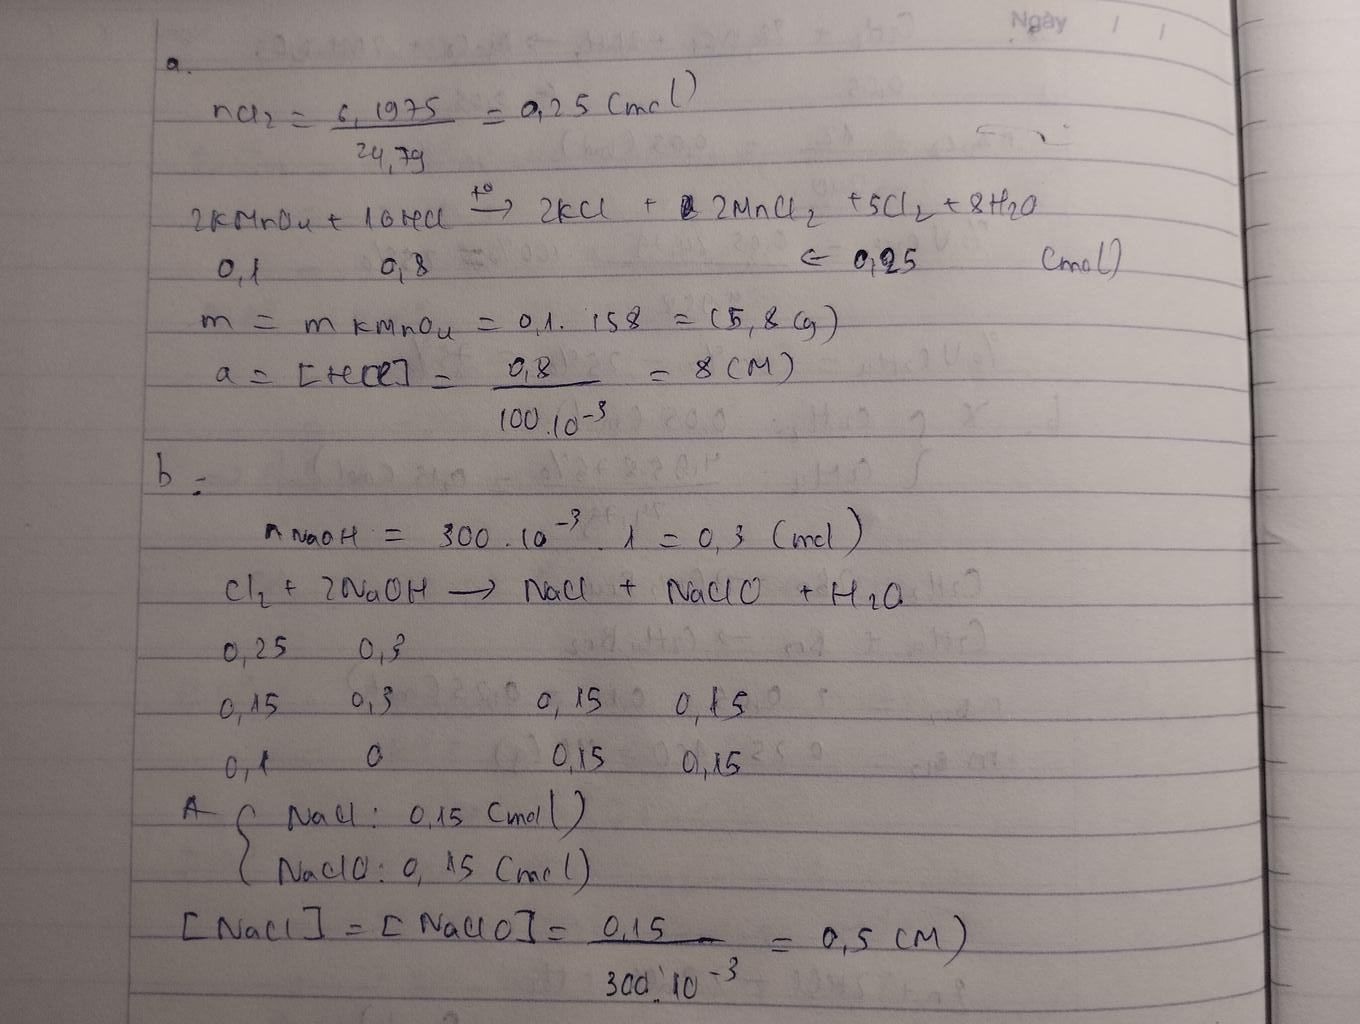 Ngày / /
a.
nCl₂ = 6,1975 / 24,79 = 0,25 (mol)
2KMnO₄ + 16HCl t° → 2KCl + 2MnCl₂ + 5Cl₂ + 8H₂O
0,1 0,8 ← 0,25 (mol)
m = m KMnO₄ = 0,1. 158 = 15,8 (g)
a = [HCl] = 0,8 / 100.10⁻³ = 8 (M)
b.
n NaOH = 300.10⁻³ . 1 = 0,3 (mol)
Cl₂ + 2NaOH → NaCl + NaClO + H₂O
0,25 0,3
0,15 0,3 0,15 0,15
0,1 0 0,15 0,15
A { NaCl: 0,15 (mol)
NaClO: 0,15 (mol)
[NaCl] = [NaClO] = 0,15 / 300.10⁻³ = 0,5 (M)